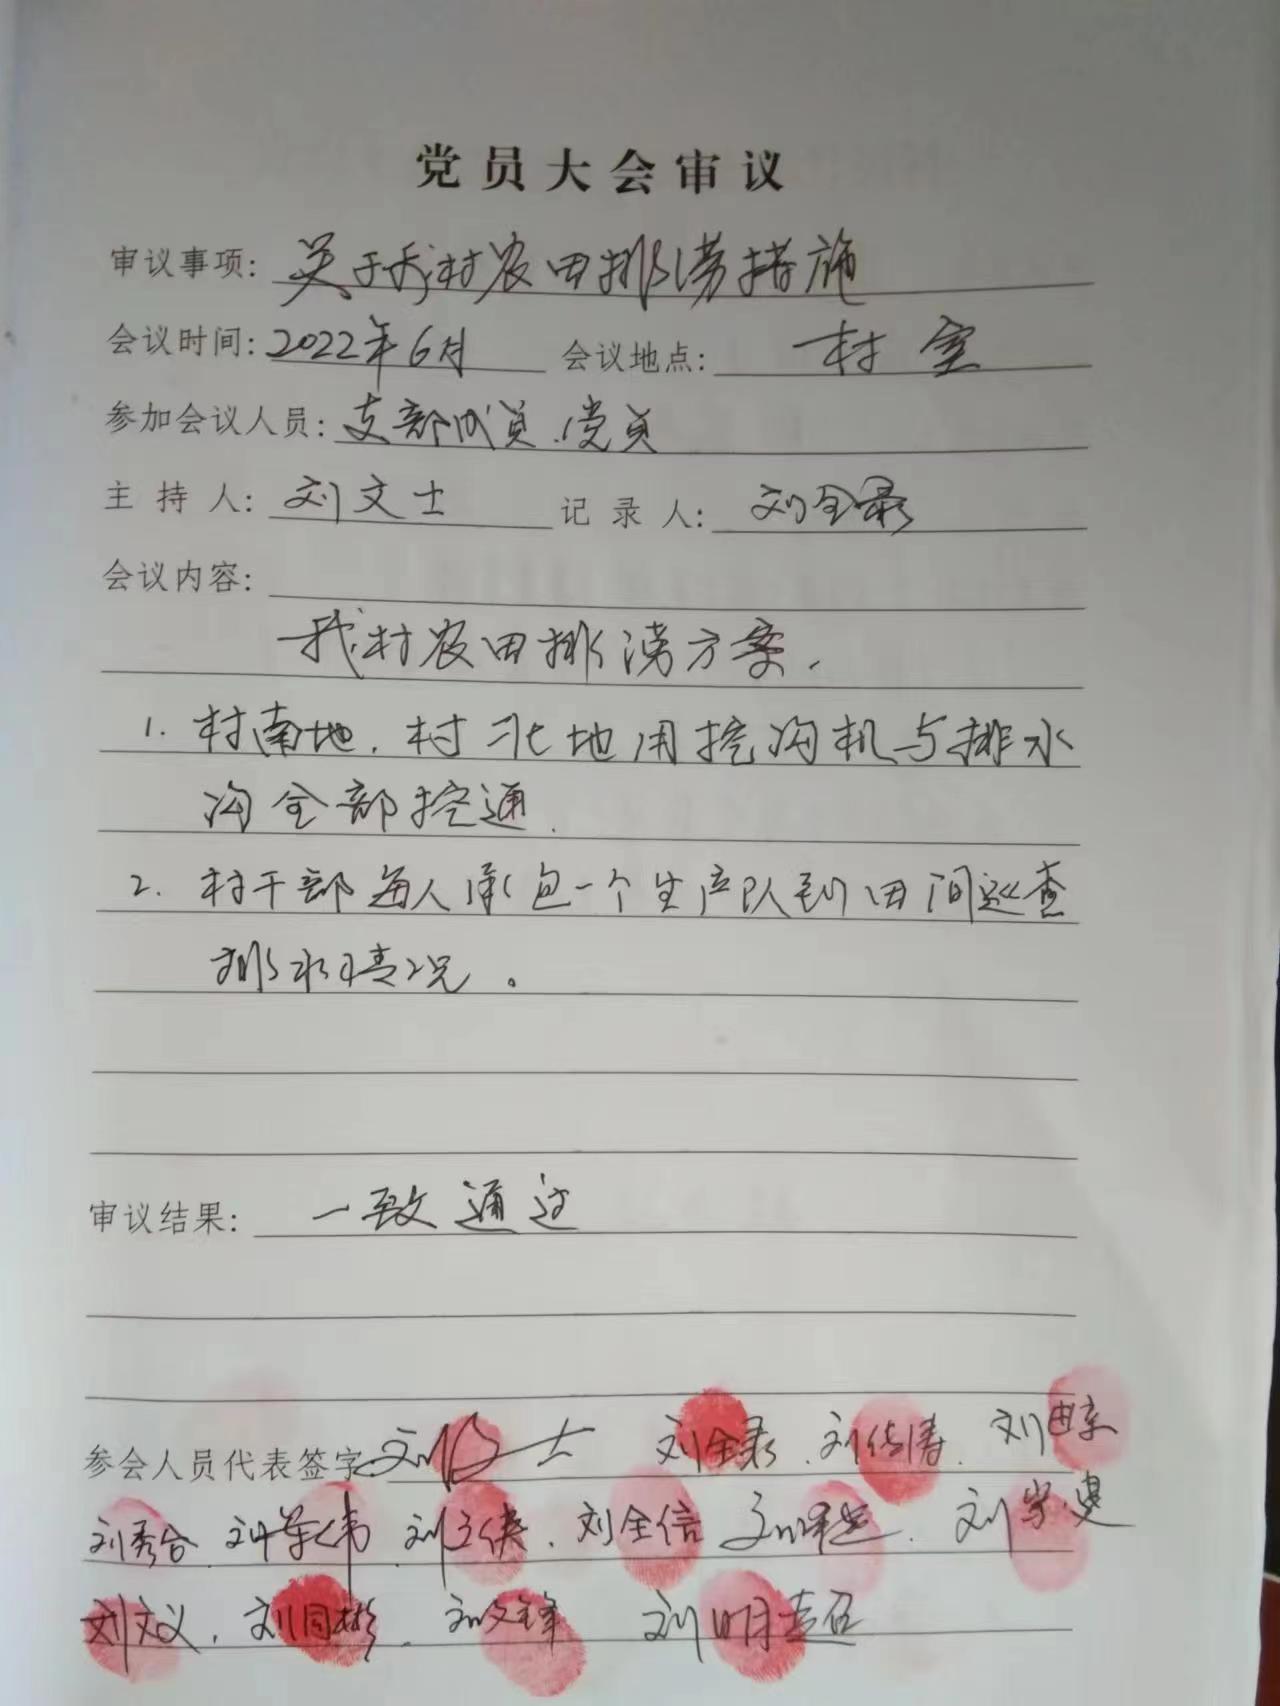 党员大会审议
审议事项: 关于我村农田排涝措施
会议时间: 2022年6月 会议地点: 村室
参加会议人员: 支部成员、党员
主持人: 刘文士 记录人: 刘全录
会议内容:
我村农田排涝方案.
1. 村南地、村北地用挖沟机与排水
沟全部挖通.
2. 村干部每人承包一个生产队到田间巡查
排水情况。
审议结果: 一致通过
参会人员代表签字: 刘文士 刘全录、刘传涛、刘
刘秀合、刘荣伟、刘文侠、刘全信 刘
刘文义、刘同彬、刘文锋 刘明